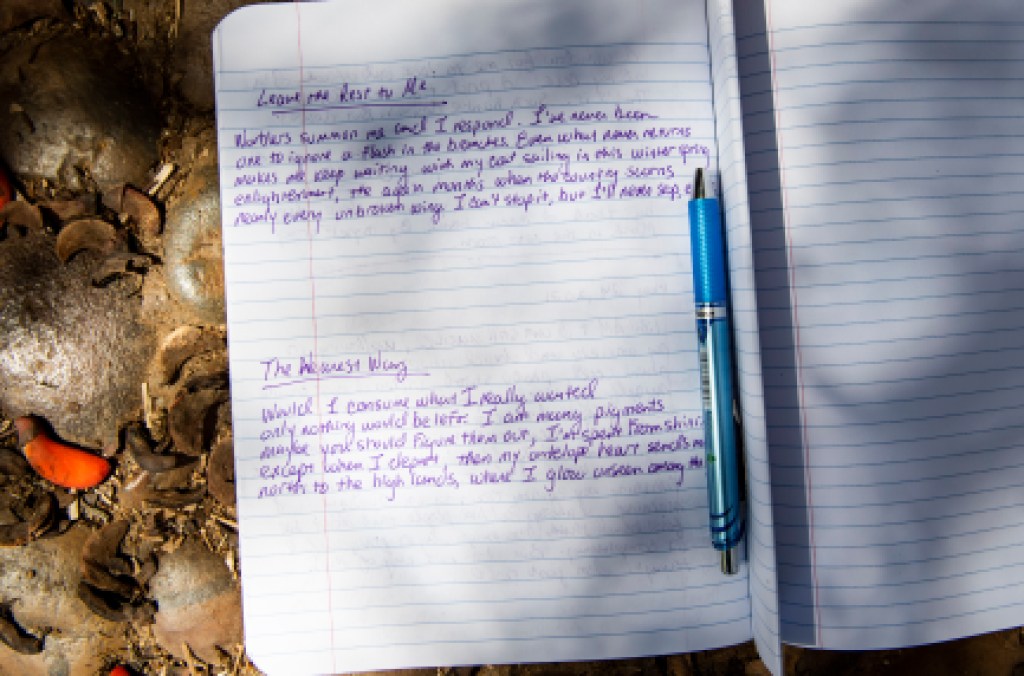 Leave the Rest to Me
Warblers summon me and I respond. I've never been
one to ignore a flash in the branches. Even what never returns
makes me keep waiting with my coat sailing in this winter spring
enlightenment, the again months when the country scorns
nearly every unbroken wing. I can't stop it, but I'll never
The Nearest Wing
Would I consume what I really wanted
only nothing would be left. I am many pigments
maybe you should figure them out, I'm spent from
except when I depart, then my antelope heart sends
north to the highlands, where I glow unseen among the